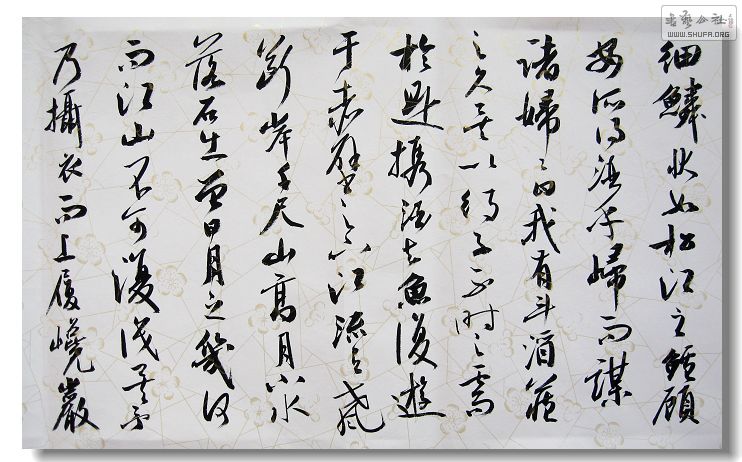 書藝公社
WWW.SHUFA.ORG
細鱗狀如松江之鱸顧
安所得酒乎歸而謀
諸婦々曰我有斗酒藏
之久矣以待子不時之需
於是攜酒與魚復遊
于赤壁之下江流有聲
斷岸千尺山高月小水
落石出曾日月之幾何
而江山不可復識矣予
乃攝衣而上履巉巖